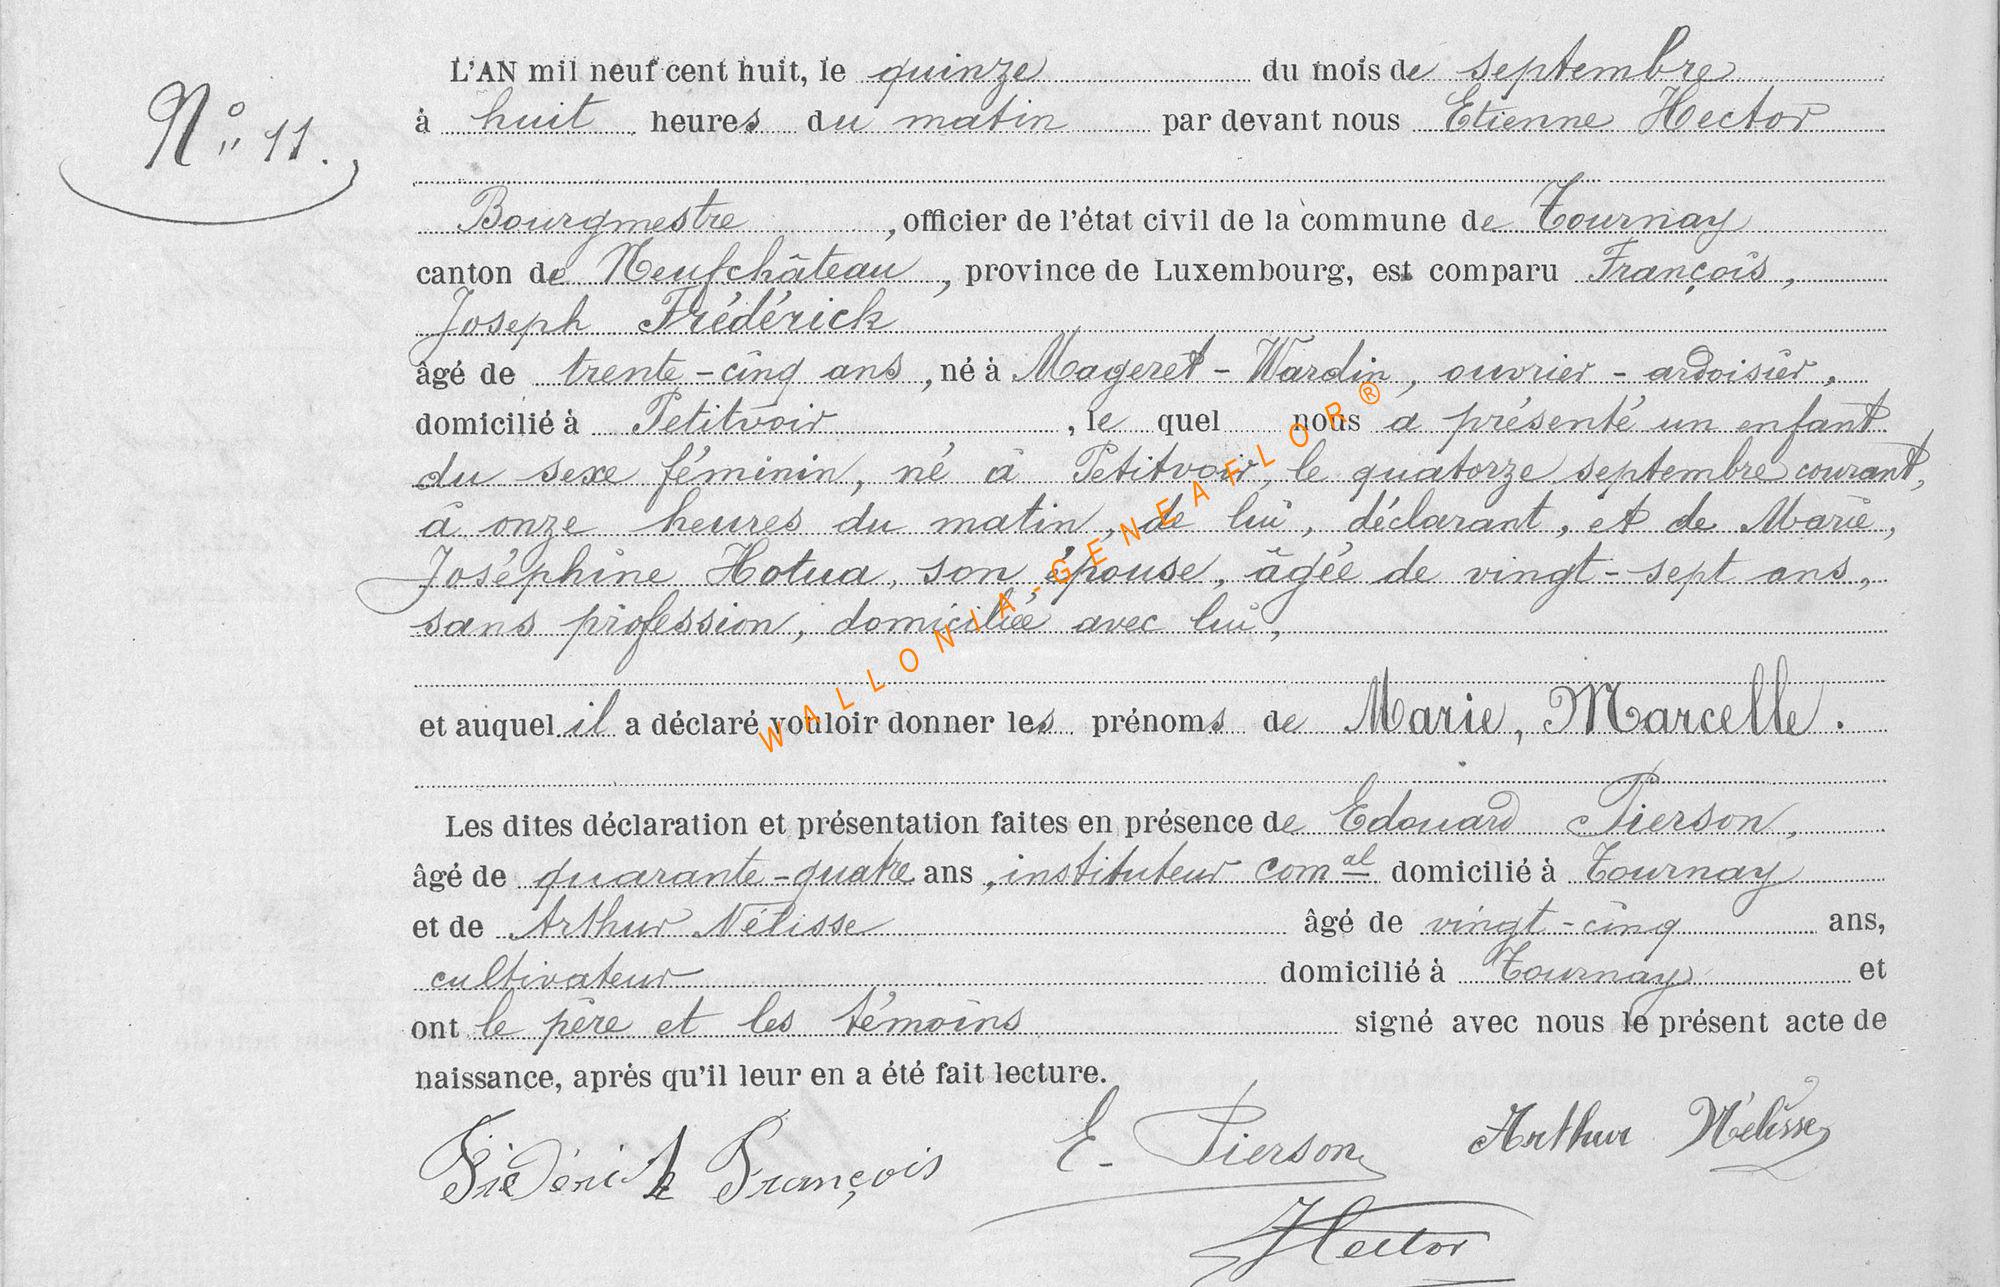 N° 11.
L'AN mil neuf cent huit, le quinze du mois de septembre
à huit heures du matin par devant nous Etienne Hector
Bourgmestre, officier de l'état civil de la commune de Tournay
canton de Neufchâteau, province de Luxembourg, est comparu François,
Joseph Frédérick
âgé de trente-cinq ans, né à Mageret-Wardin, ouvrier-ardoisier,
domicilié à Petitvoir, le quel nous a présenté un enfant
du sexe féminin, né à Petitvoir, le quatorze septembre courant,
à onze heures du matin, de lui, déclarant, et de Marie,
Joséphine Hotua, son épouse, âgée de vingt-sept ans,
sans profession, domiciliée avec lui,
et auquel il a déclaré vouloir donner les prénoms de Marie, Marcelle.
Les dites déclaration et présentation faites en présence de Edouard Pierson,
âgé de quarante-quatre ans, instituteur com.al domicilié à Tournay
et de Arthur Nélisse âgé de vingt-cinq ans,
cultivateur domicilié à Tournay et
ont le père et les témoins signé avec nous le présent acte de
naissance, après qu'il leur en a été fait lecture.
Frédérick François E. Pierson Arthur Nélisse
Hector
WALLONIA-GENEAFLOR®